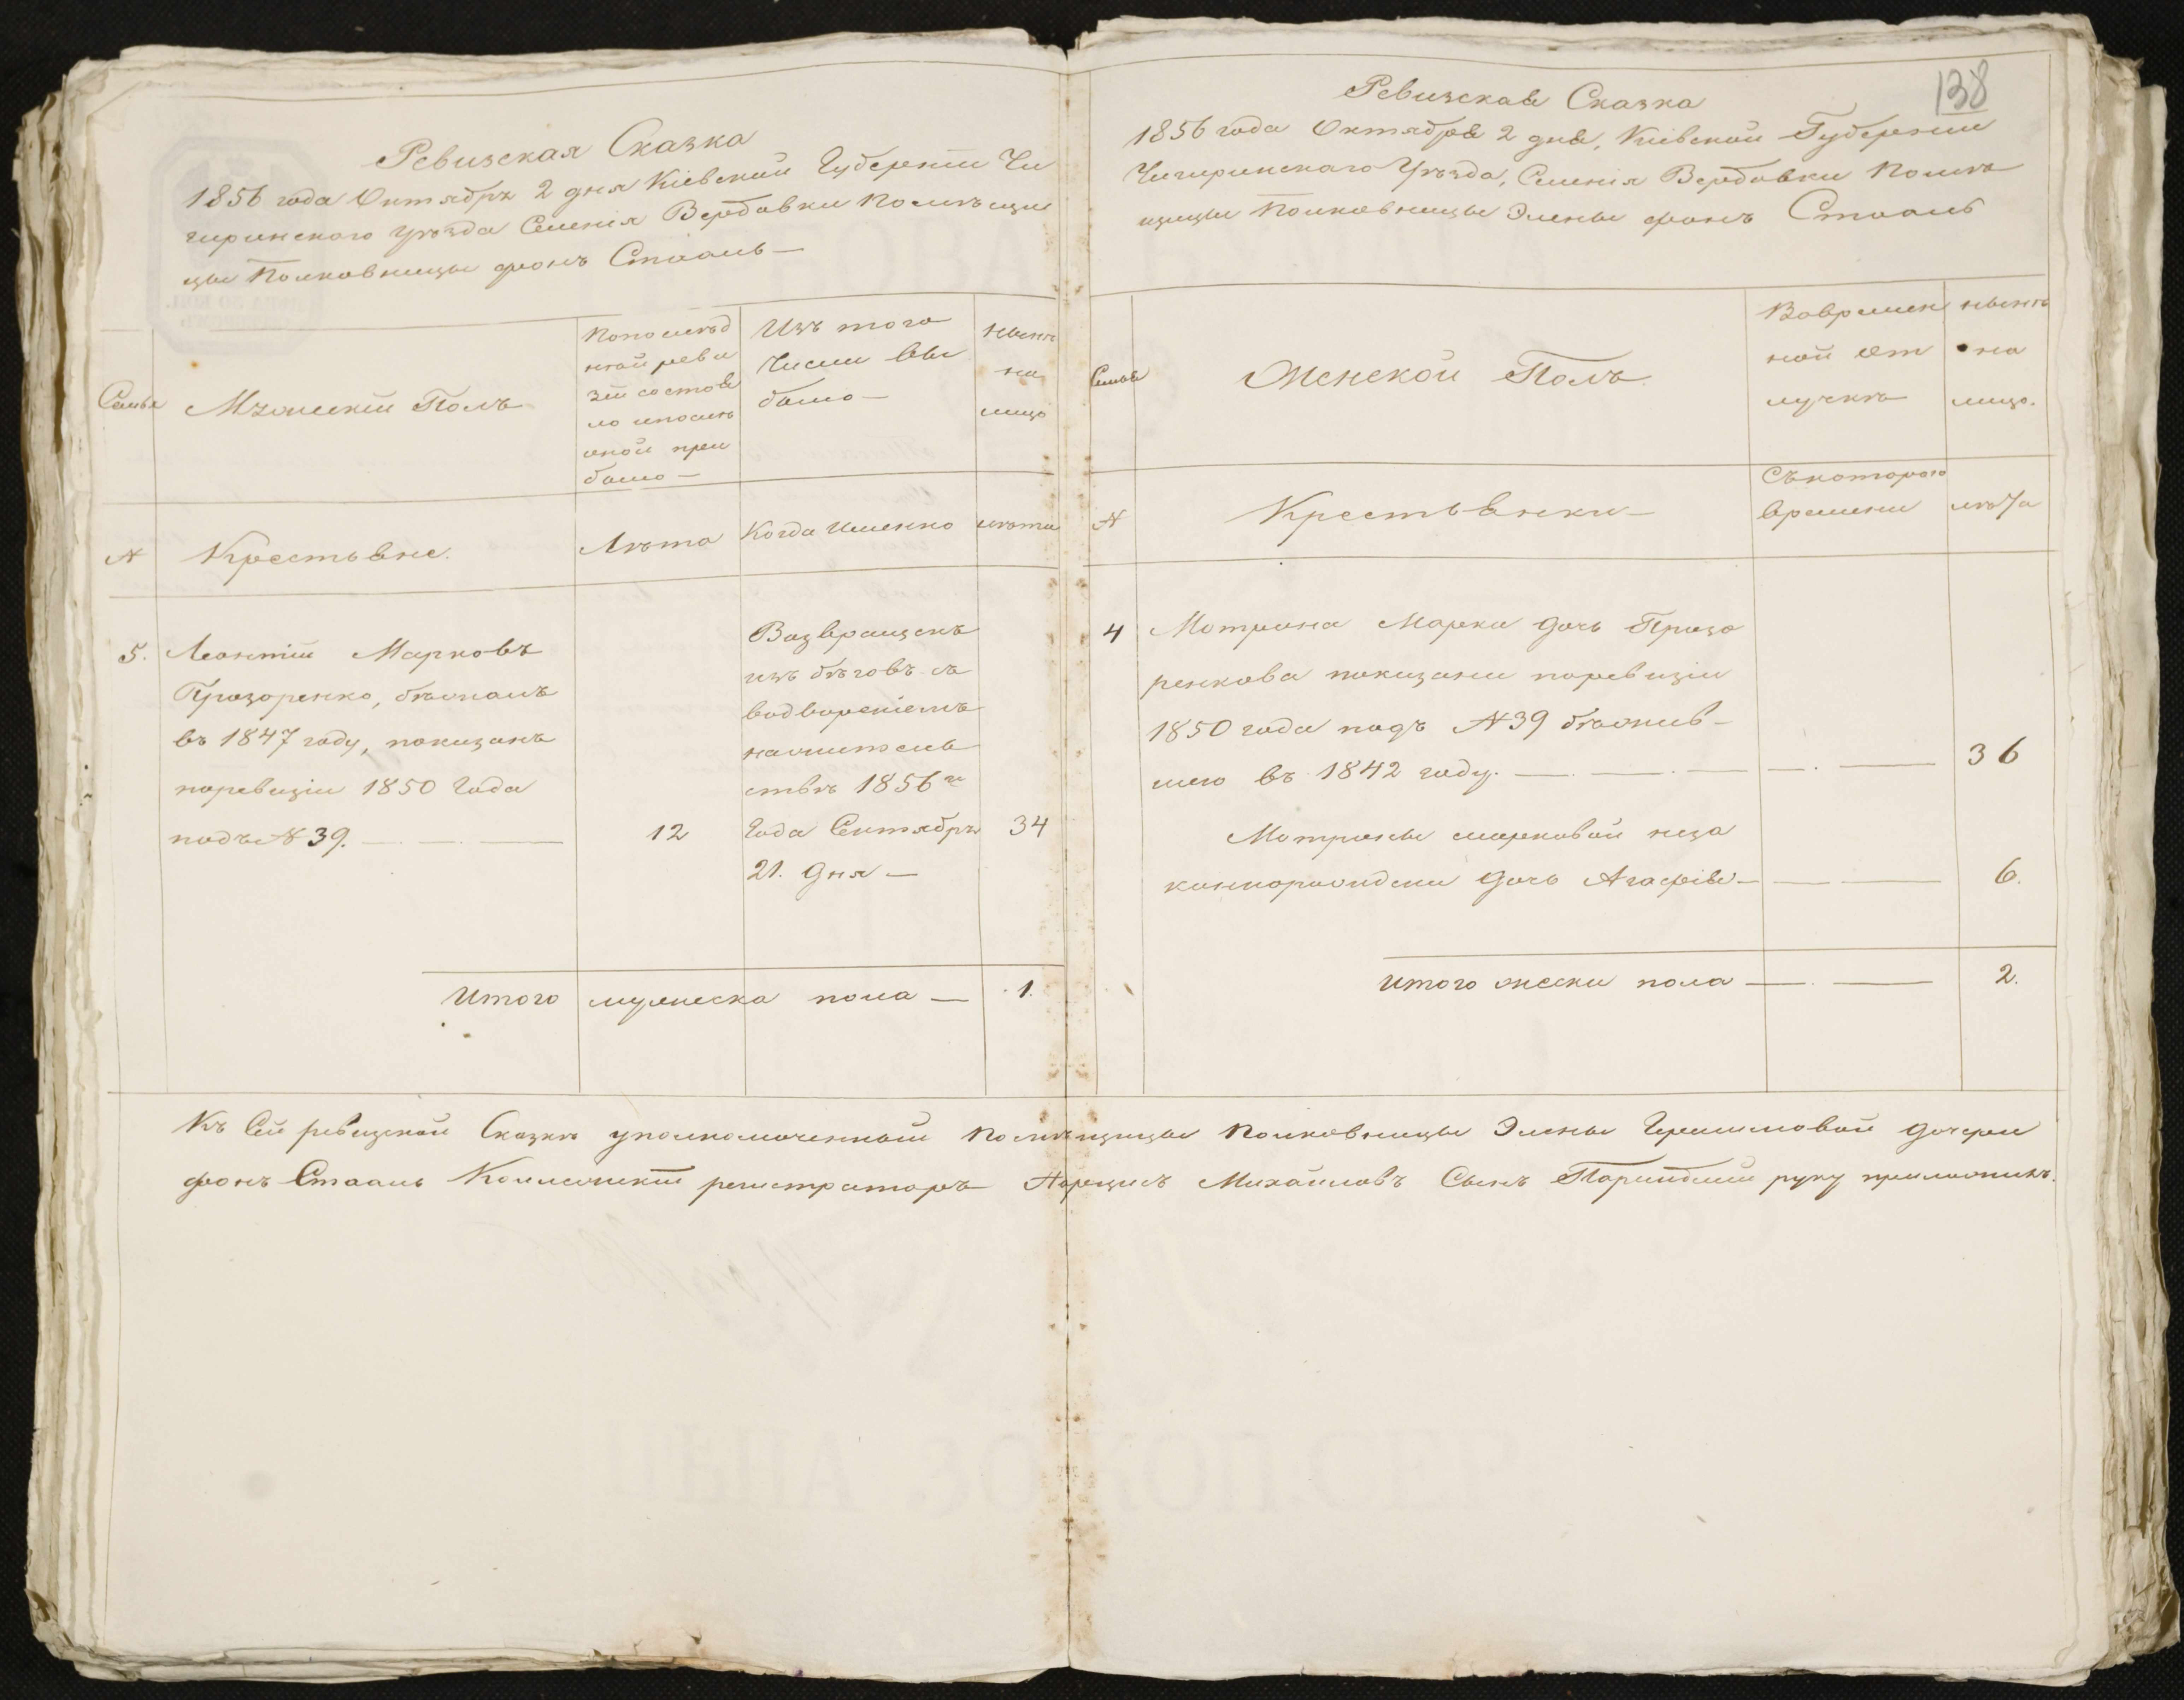 Ревизская Сказка
1856 года Октябрѣ 2 дня Кіевской Губерніи Чи
гиринского уѣзда Селенія Вербовки Помѣщи
цы Полковницы фонъ Стааль —
Семья
Мужескій Полъ
Попослѣд
ней реви
зіи состоя
ло ипослѣ
оной при
было —
Изъ того
Числа вы
было —
Нынѣ
на
лицо
№
Крестьяне.
Лѣта
Когда именно
лѣта
5.
Леонтій Марковъ
Прозоренко, бѣжалъ
въ 1847 году, показанъ
поревизіи 1850 Года
подъ № 39. — — —
12
Возвращенъ
изъ бѣговъ съ
водвореніемъ
нажитель
ствѣ 1856 го
Года Сентябръ
21. Дня —
34
Итого мужеска пола — 1.
138
Ревизская Сказка
1856 года Октября 2 дня, Кіевской Губерніи
Чигиринскаго Уѣзда, Селенія Вербовки Помѣ
щицы Полковницы Элены фонъ Стааль
Семья
Женской Полъ
Вовремен
ной от
лучкѣ
нынѣ
на
лицо.
№
Крестьянки —
Съкоторого
времени
лѣта
4
Мотрона Марка дочь Прозо
ренкова показаны поревизіи
1850 года подъ № 39 бѣжав-
шею въ 1842 году. — — — — — 36
Мотроны марковой неза
конорожденна дочь Агафія — — — 6.
Итого женска пола — — 2.
Къ Сей ревизской Сказкѣ уполномоченный Помѣщицы Полковницы Элены Герасимовой дочери
фонъ Стааль Коллежскій регистраторъ Нарцисъ Михайловъ Сынъ руку приложилъ.